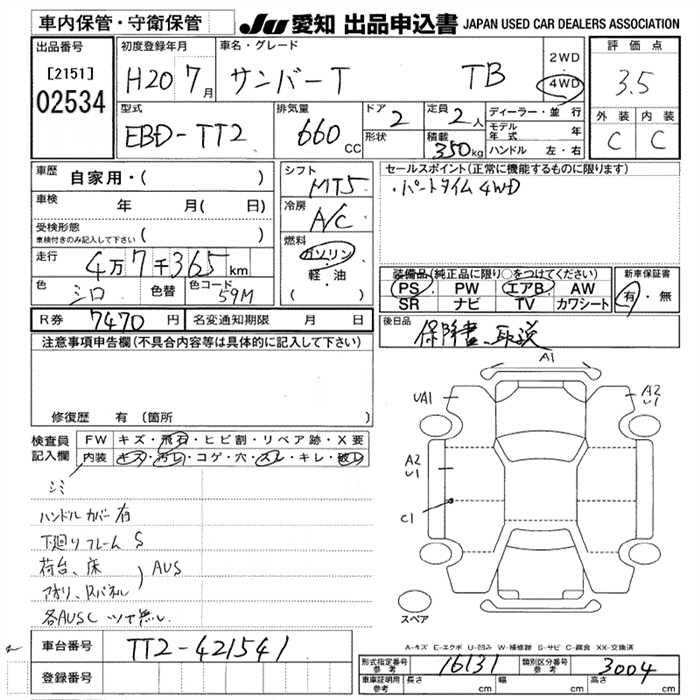 車内保管・守衛保管
JU 愛知 出品申込書 JAPAN USED CAR DEALERS ASSOCIATION
出品番号
[2151]
02534
初度登録年月
H20 7月
車名・グレード
サンバーT TB
2WD
4WD
評価点
3.5
外装 内装
C C
型式
EBD-TT2
排気量
660 CC
ドア 2
形状
定員 2人
積載 350kg
ディーラー・並行
モデル年式 年
ハンドル 左・右
車歴
自家用・( )
車検 年 月( 日)
受検形態
車検付きのみ記入して下さい ( )
走行 4万7千365km
色 シロ 色替 色コード 59M
シフト
MT5
冷房
A/C
燃料
ガソリン
軽・油
( )
セールスポイント(正常に機能するものに限ります)
・パートタイム4WD
装備品(純正品に限り○をつけてください)
PS PW エアB AW
SR ナビ TV カワシート
新車保証書
有・無
R券 7470円 名変通知期限 月 日
後日品
保障書、取説
注意事項申告欄(不具合内容等は具体的に記入して下さい)
修復歴 有(箇所 )
検査員記入欄
FW キズ・飛石・ヒビ割・リペア跡・X要
内装 キズ・汚レ・コゲ・穴・スレ・キレ・破レ
シミ
ハンドルカバー有
下廻りフレームS
荷台、床
アオリ、Rパネル
AUS
各AUSC ツヤ無し
A1
UA1
A2
U1
A2
U1
C1
スペア
A-キズ E-エクボ U-凹み W-補修跡 S-サビ C-腐食 XX-交換済
車台番号 TT2-421541
登録番号
型式指定番号
参考
16131
類別区分番号
参考
3004
車庫証明用
参考
長さ cm 幅 cm 高さ cm